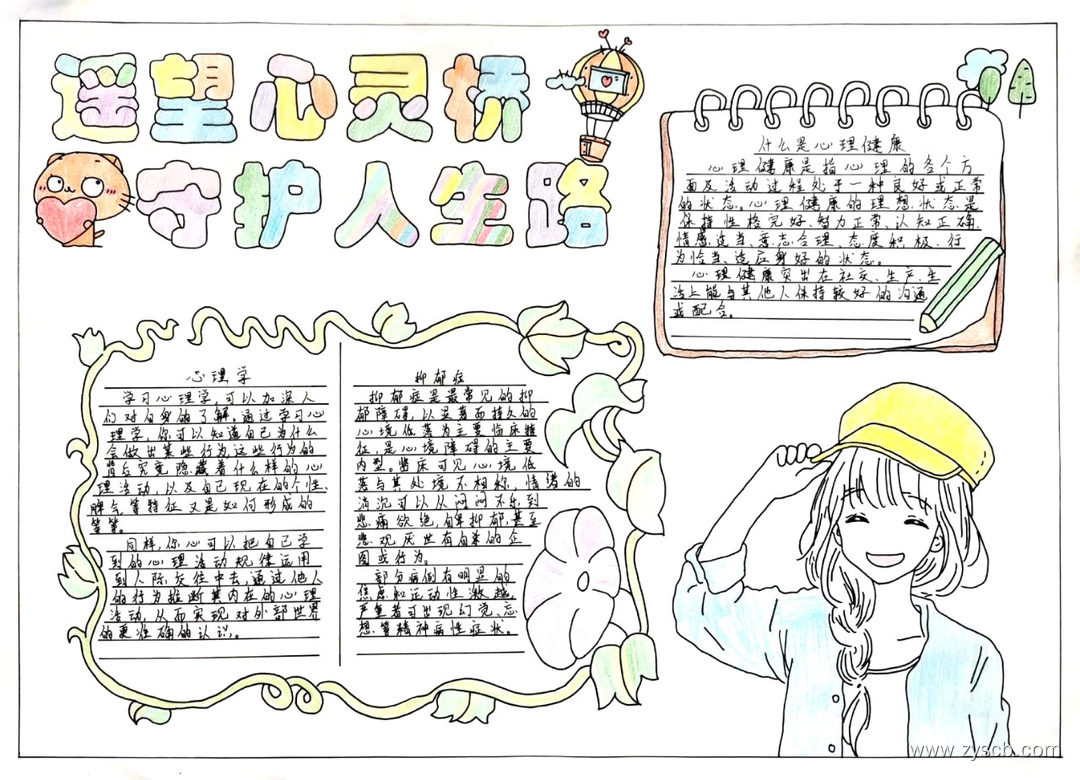 遥望心灵桥
守护人生路
什么是心理健康
心理健康是指心理的各个方
面及活动过程处于一种良好或正常
的状态。心理健康的理想状态是
保持性格完好、智力正常、认知正确、
情感适当、意志合理、态度积极、行
为恰当、适应良好的状态。
心理健康突出在社交、生产、生
活上能与其他人保持较好的沟通
或配合。
心理学
学习心理学,可以加深人
们对自身的了解。通过学习心
理学,你可以知道自己为什么
会做出某些行为,这些行为的
背后究竟隐藏着什么样的心
理活动,以及自己现在的个性、
脾气等特征又是如何形成的
等等。
同样,你也可以把自己学
到的心理活动规律运用
到人际交往中去,通过他人
的行为推断其内在的心理
活动,从而实现对外部世界
的更准确的认识。
抑郁症
抑郁症是最常见的抑
郁障碍,以显著而持久的
心境低落为主要临床特
征,是心境障碍的主要
类型。临床可见心境低
落与其处境不相称,情绪的
消沉可以从闷闷不乐到
悲痛欲绝,自卑抑郁,甚至
悲观厌世有自杀的企
图或行为。
部分病例有明显的
焦虑和运动性激越,
严重者可出现幻觉、妄
想等精神病性症状。
www.zyscb.com